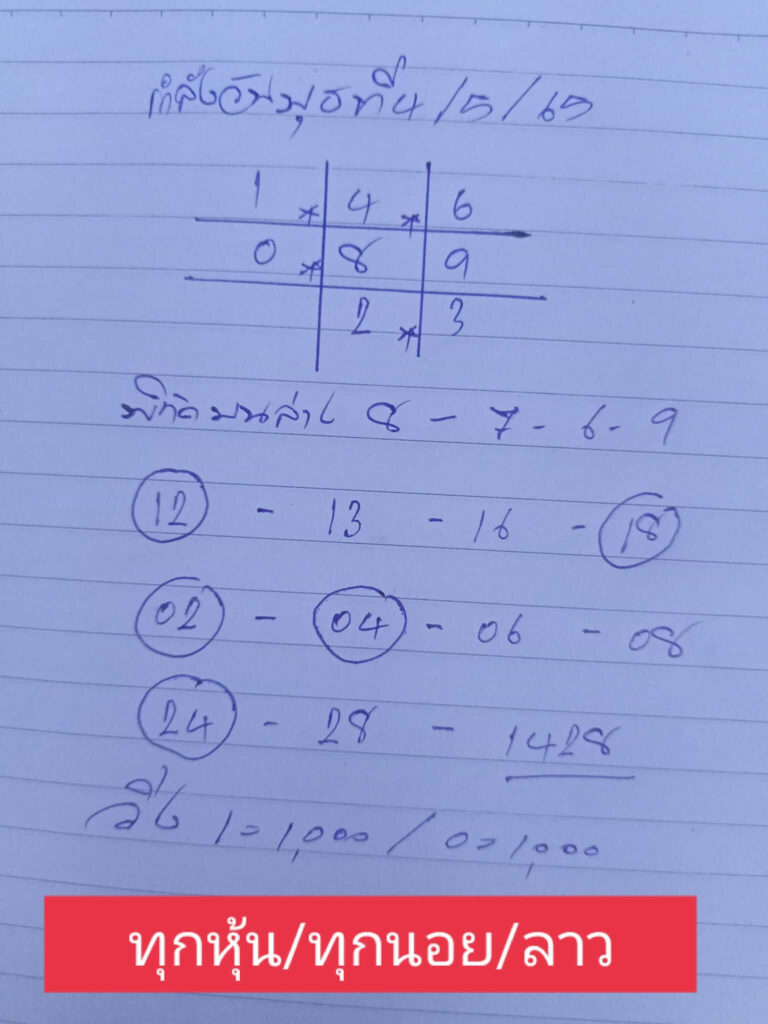 กำลังวันพุธที่4/5/65
1 * 4 * 6
0 * 8 9
2 * 3
พิกัดบนล่าง 8 - 7 - 6 - 9
12 - 13 - 16 - 18
02 - 04 - 06 - 08
24 - 28 - 1428
วิ่ง 1=1,000 / 0=1,000
ทุกหุ้น/ทุกนอย/ลาว